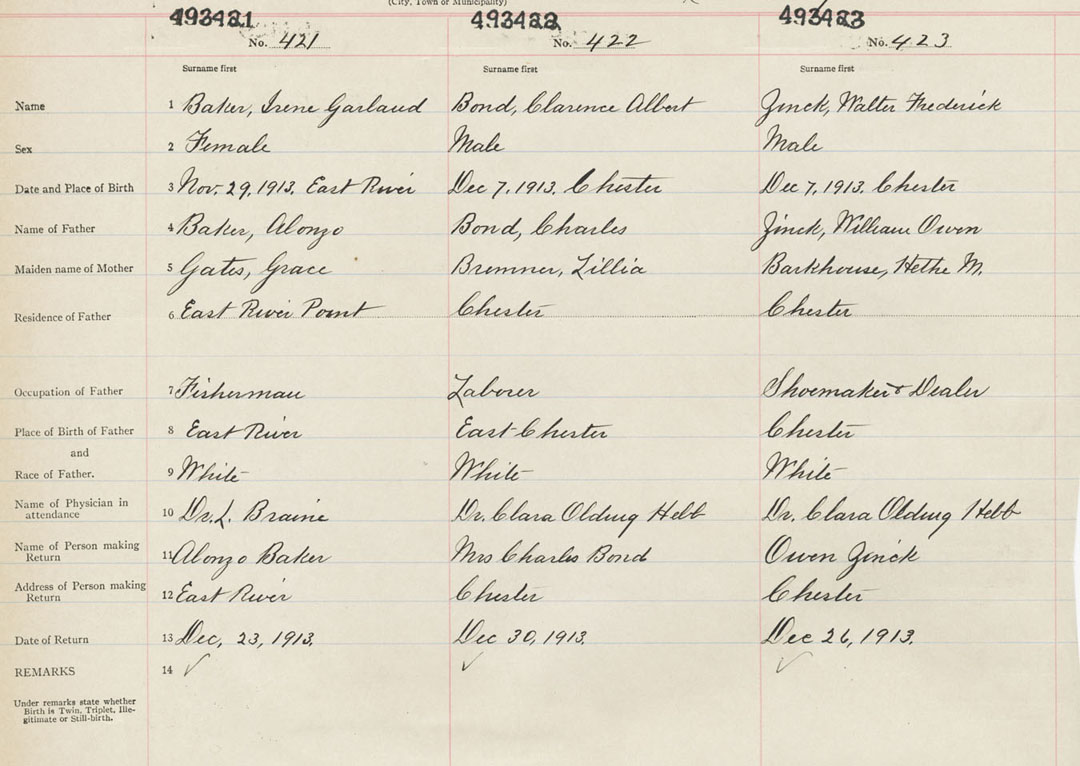 (City, Town or Municipality)
493421 493422 493423
No. 421 No. 422 No. 423
Surname first Surname first Surname first
Name 1 Baker, Irene Garland Bond, Clarence Albert Zinck, Walter Frederick
Sex 2 Female Male Male
Date and Place of Birth 3 Nov. 29, 1913. East River Dec 7, 1913. Chester Dec 7, 1913. Chester
Name of Father 4 Baker, Alonzo Bond, Charles Zinck, William Owen
Maiden name of Mother 5 Gates, Grace Bremner, Lillia Barkhouse, Hethe M.
Residence of Father 6 East River Point Chester Chester
Occupation of Father 7 Fisherman Laborer Shoemaker & Dealer
Place of Birth of Father 8 East River East Chester Chester
and
Race of Father. 9 White White White
Name of Physician in
attendance 10 Dr. L. Braine Dr. Clara Olding Hebb Dr. Clara Olding Hebb
Name of Person making
Return 11 Alonzo Baker Mrs Charles Bond Owen Zinck
Address of Person making
Return 12 East River Chester Chester
Date of Return 13 Dec, 23, 1913. Dec 30, 1913. Dec 26, 1913.
REMARKS 14 ✓ ✓ ✓
Under remarks state whether
Birth is Twin, Triplet, Ille-
gitimate or Still-birth.